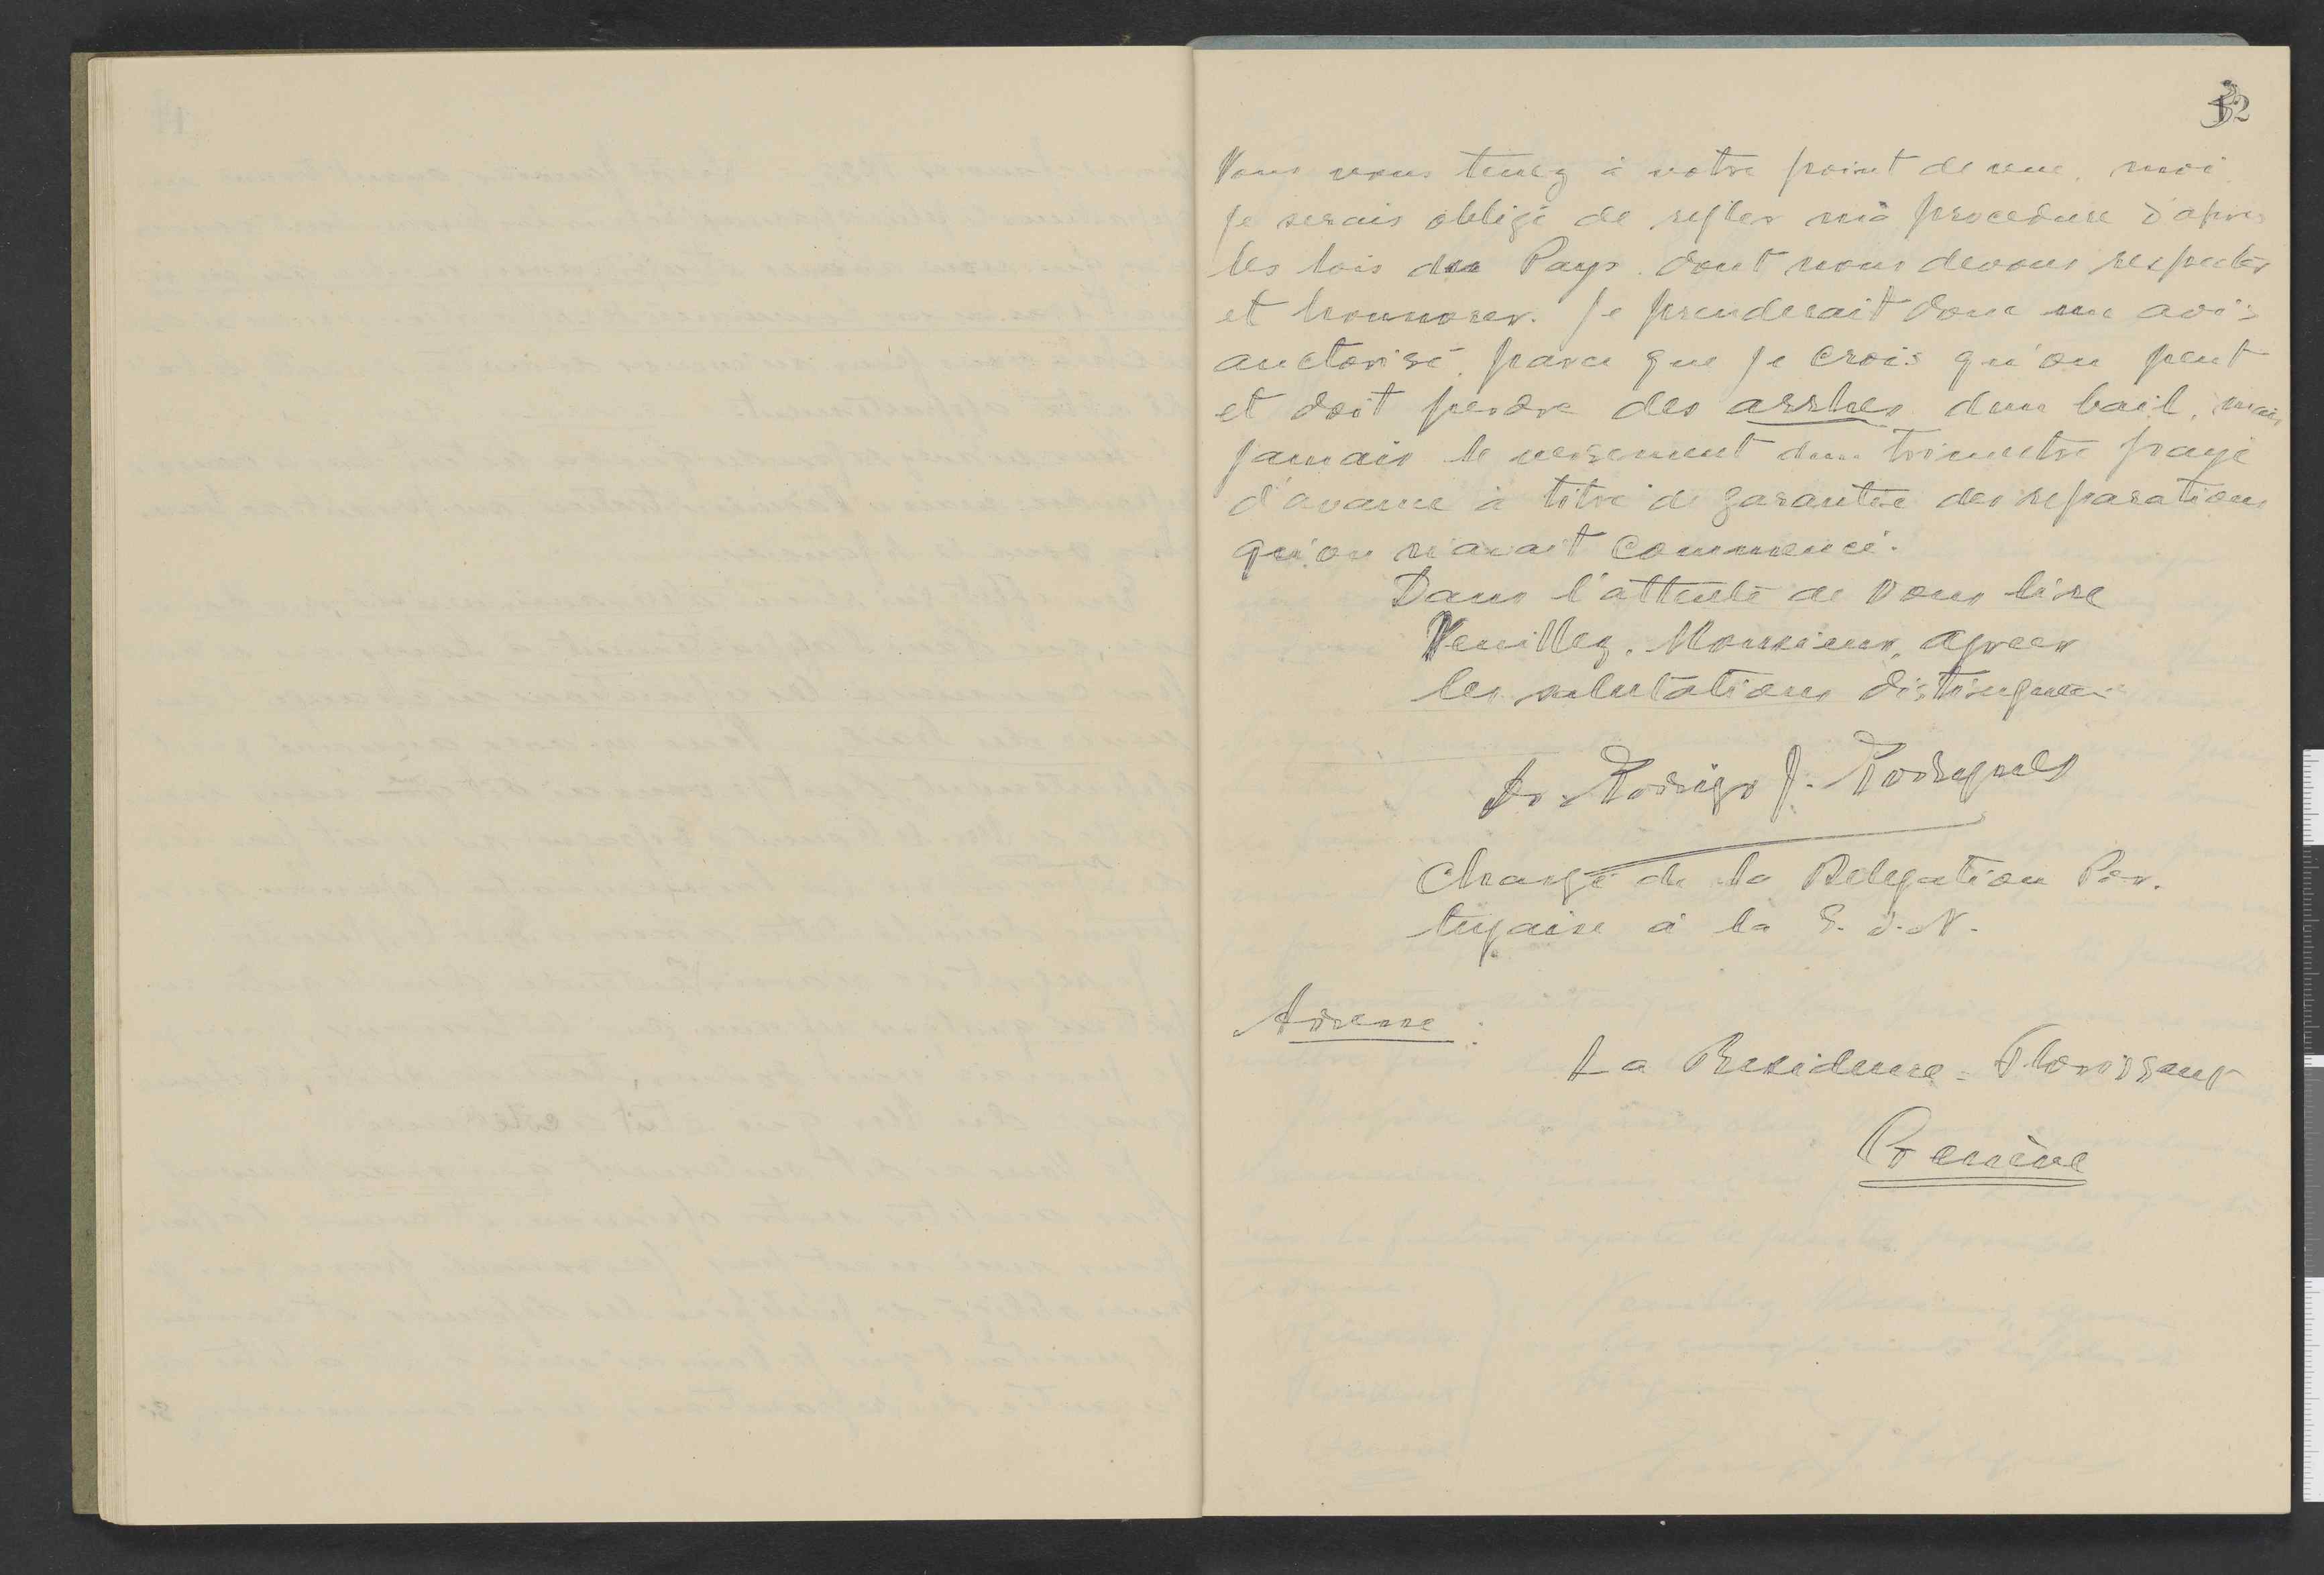 12
Vous vous tenez à votre point de vue, moi
je serais obligé de regler mà procedure d'apres
les lois des Pays dont nous devons respecter
et honnorer. Je prenderait donc un avis
auctorisé, parce que je crois qu'on peut
et doit perdre des arrhes dun bail, mais
jamais le versement dun trimestre payé
d'avance à titre de garantie des reparations
qu'on n'avait commencé.
Dans l'attente de vous lire
Veuillez, Monsieur, agreer
les salutations distinguées
Dr. Rodrigo J. Rodrigues
Chargé de la Delegation Por-
tugaise à la S. d. N.
Adresse:
La Residence - Florissant
Genève